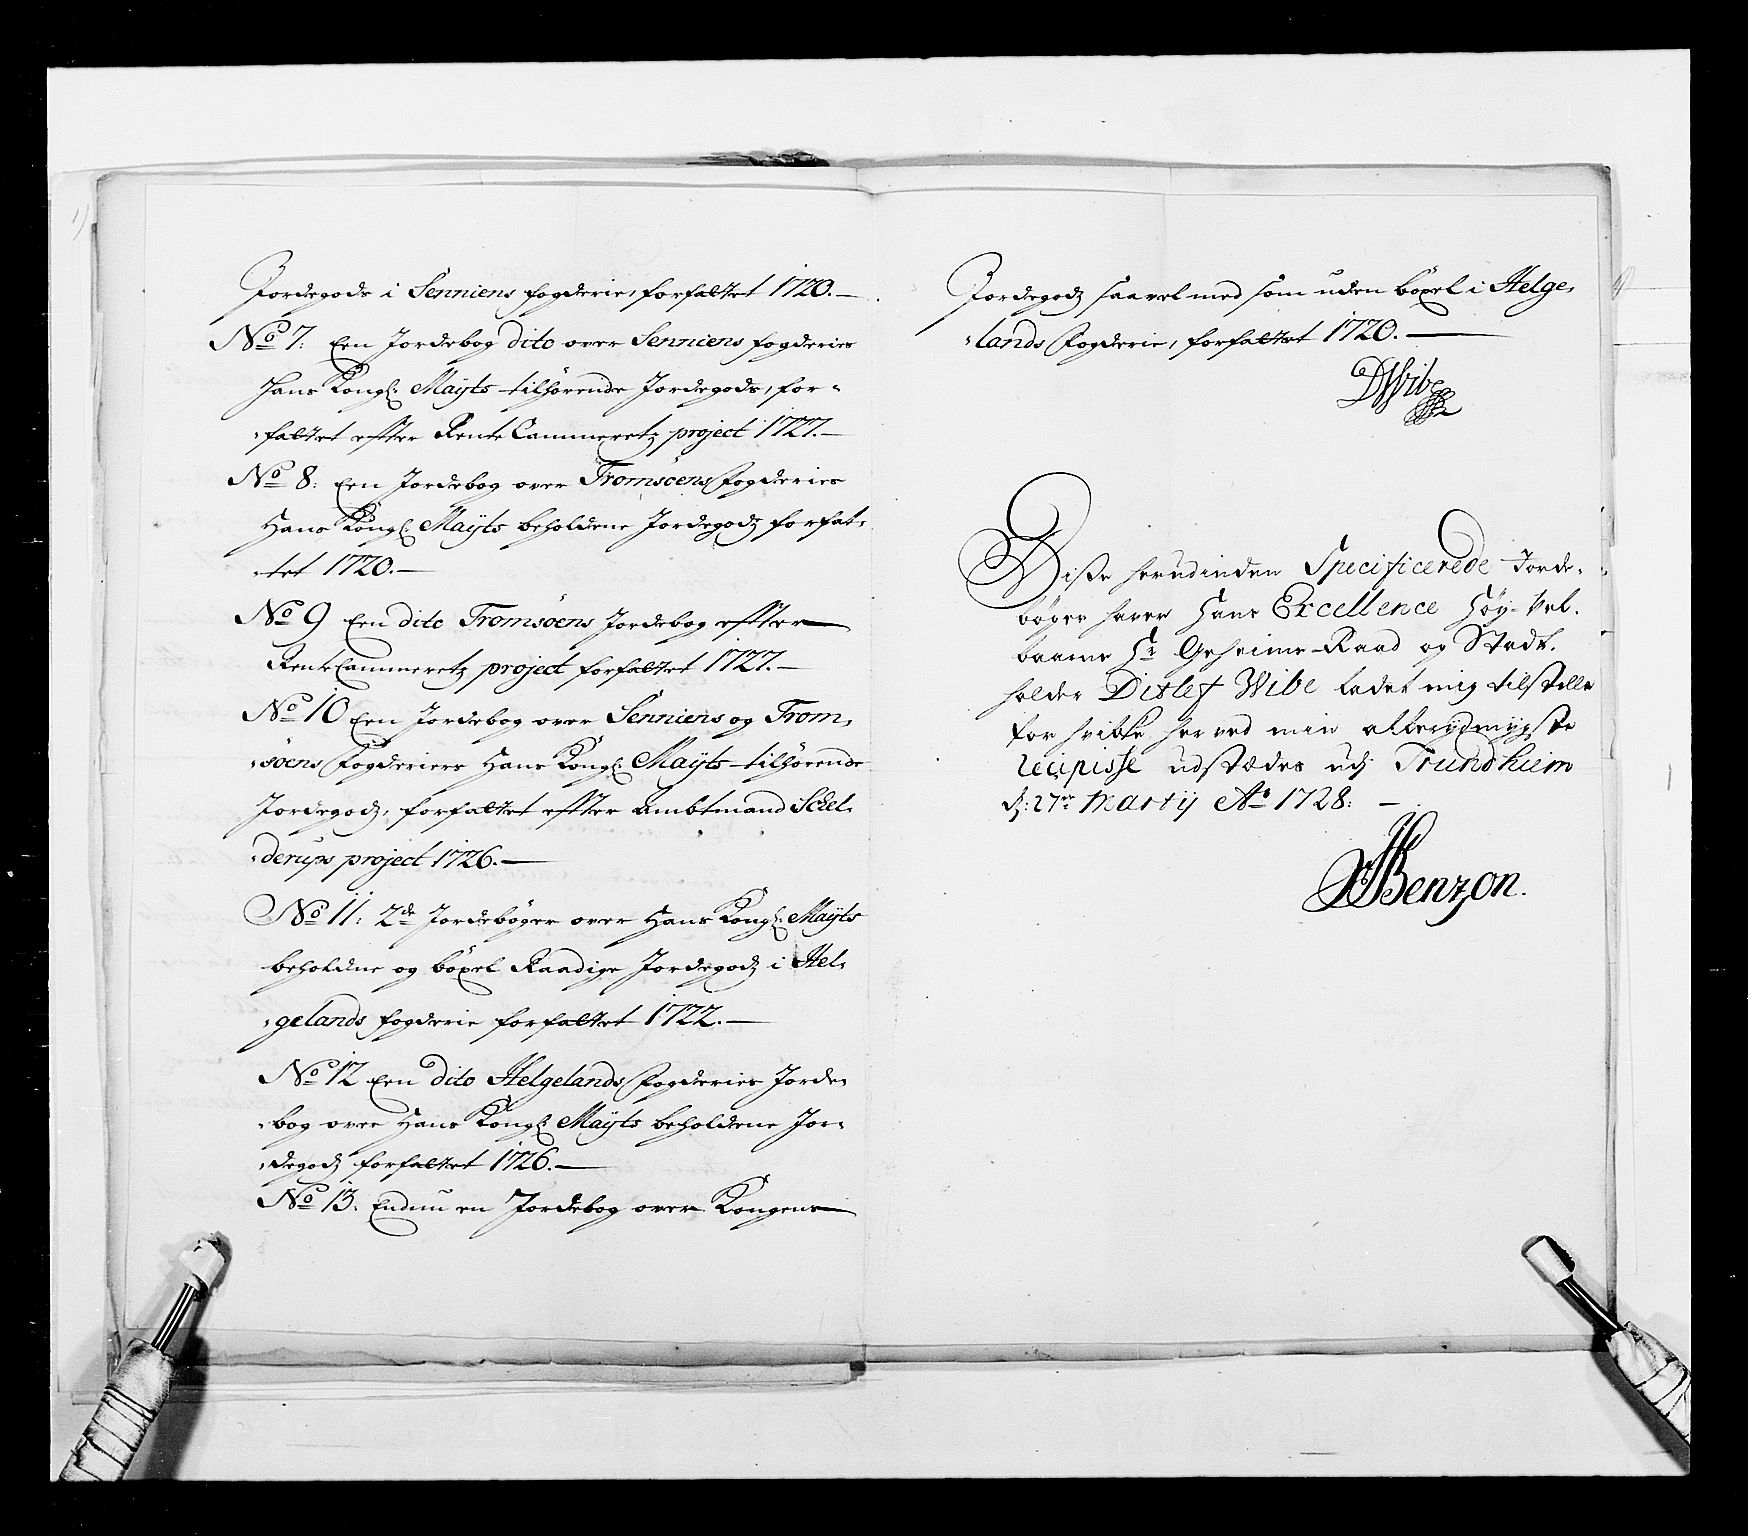 Jordegods i Senniens fogderie, forfattet 1720.—
No 7: Een Jordebog dito over Senniens fogderies
Hans Kongl: Mayts tilhörende Jordegods, for-
fattet effter Rente Cammeretz project 1727.—
No 8: Een Jordebog over Tromsöens Fogderies
Hans Kongl: Mayts beholdene Jordegodz forfat-
tet 1720.—
No 9 Een dito Tromsöens Jordebog effter
Rente Cammeretz project forfattet 1727.—
No 10 Een Jordebog over Senniens og Trom-
söens Fogderiers Hans Kongl: Mayts tilhörende
Jordegodz, forfattet effter Ambtmand Schel-
derups project 1726.—
No 11: 2de Jordebøger over Hans Kongl: Mayts
beholdne og böxel Raadige Jordegodz i Hel-
gelands fogderie forfattet 1722.—
No 12 Een dito Helgelands Fogderies Jorde-
bog over Hans Kongl: Mayts beholdene Jor-
degodz forfattet 1726.—
No 13. Endnu en Jordebog over Kongens
Jordegodz saavel med som uden böxel i Helge-
lands Fogderie, forfattet 1720.—
DWibe
Disse herudinden Specificerede Jorde-
bøger haver Hans Excellence Høy-Vel-
baarne Hr Geheime-Raad og Stadt-
holder Ditlef Wibe ladet mig tilstille
for hvilke herved min allerydmygste
recipisse udstædes udj Trundhiem
d: 27de Martij Ao 1728: —
Benzon.